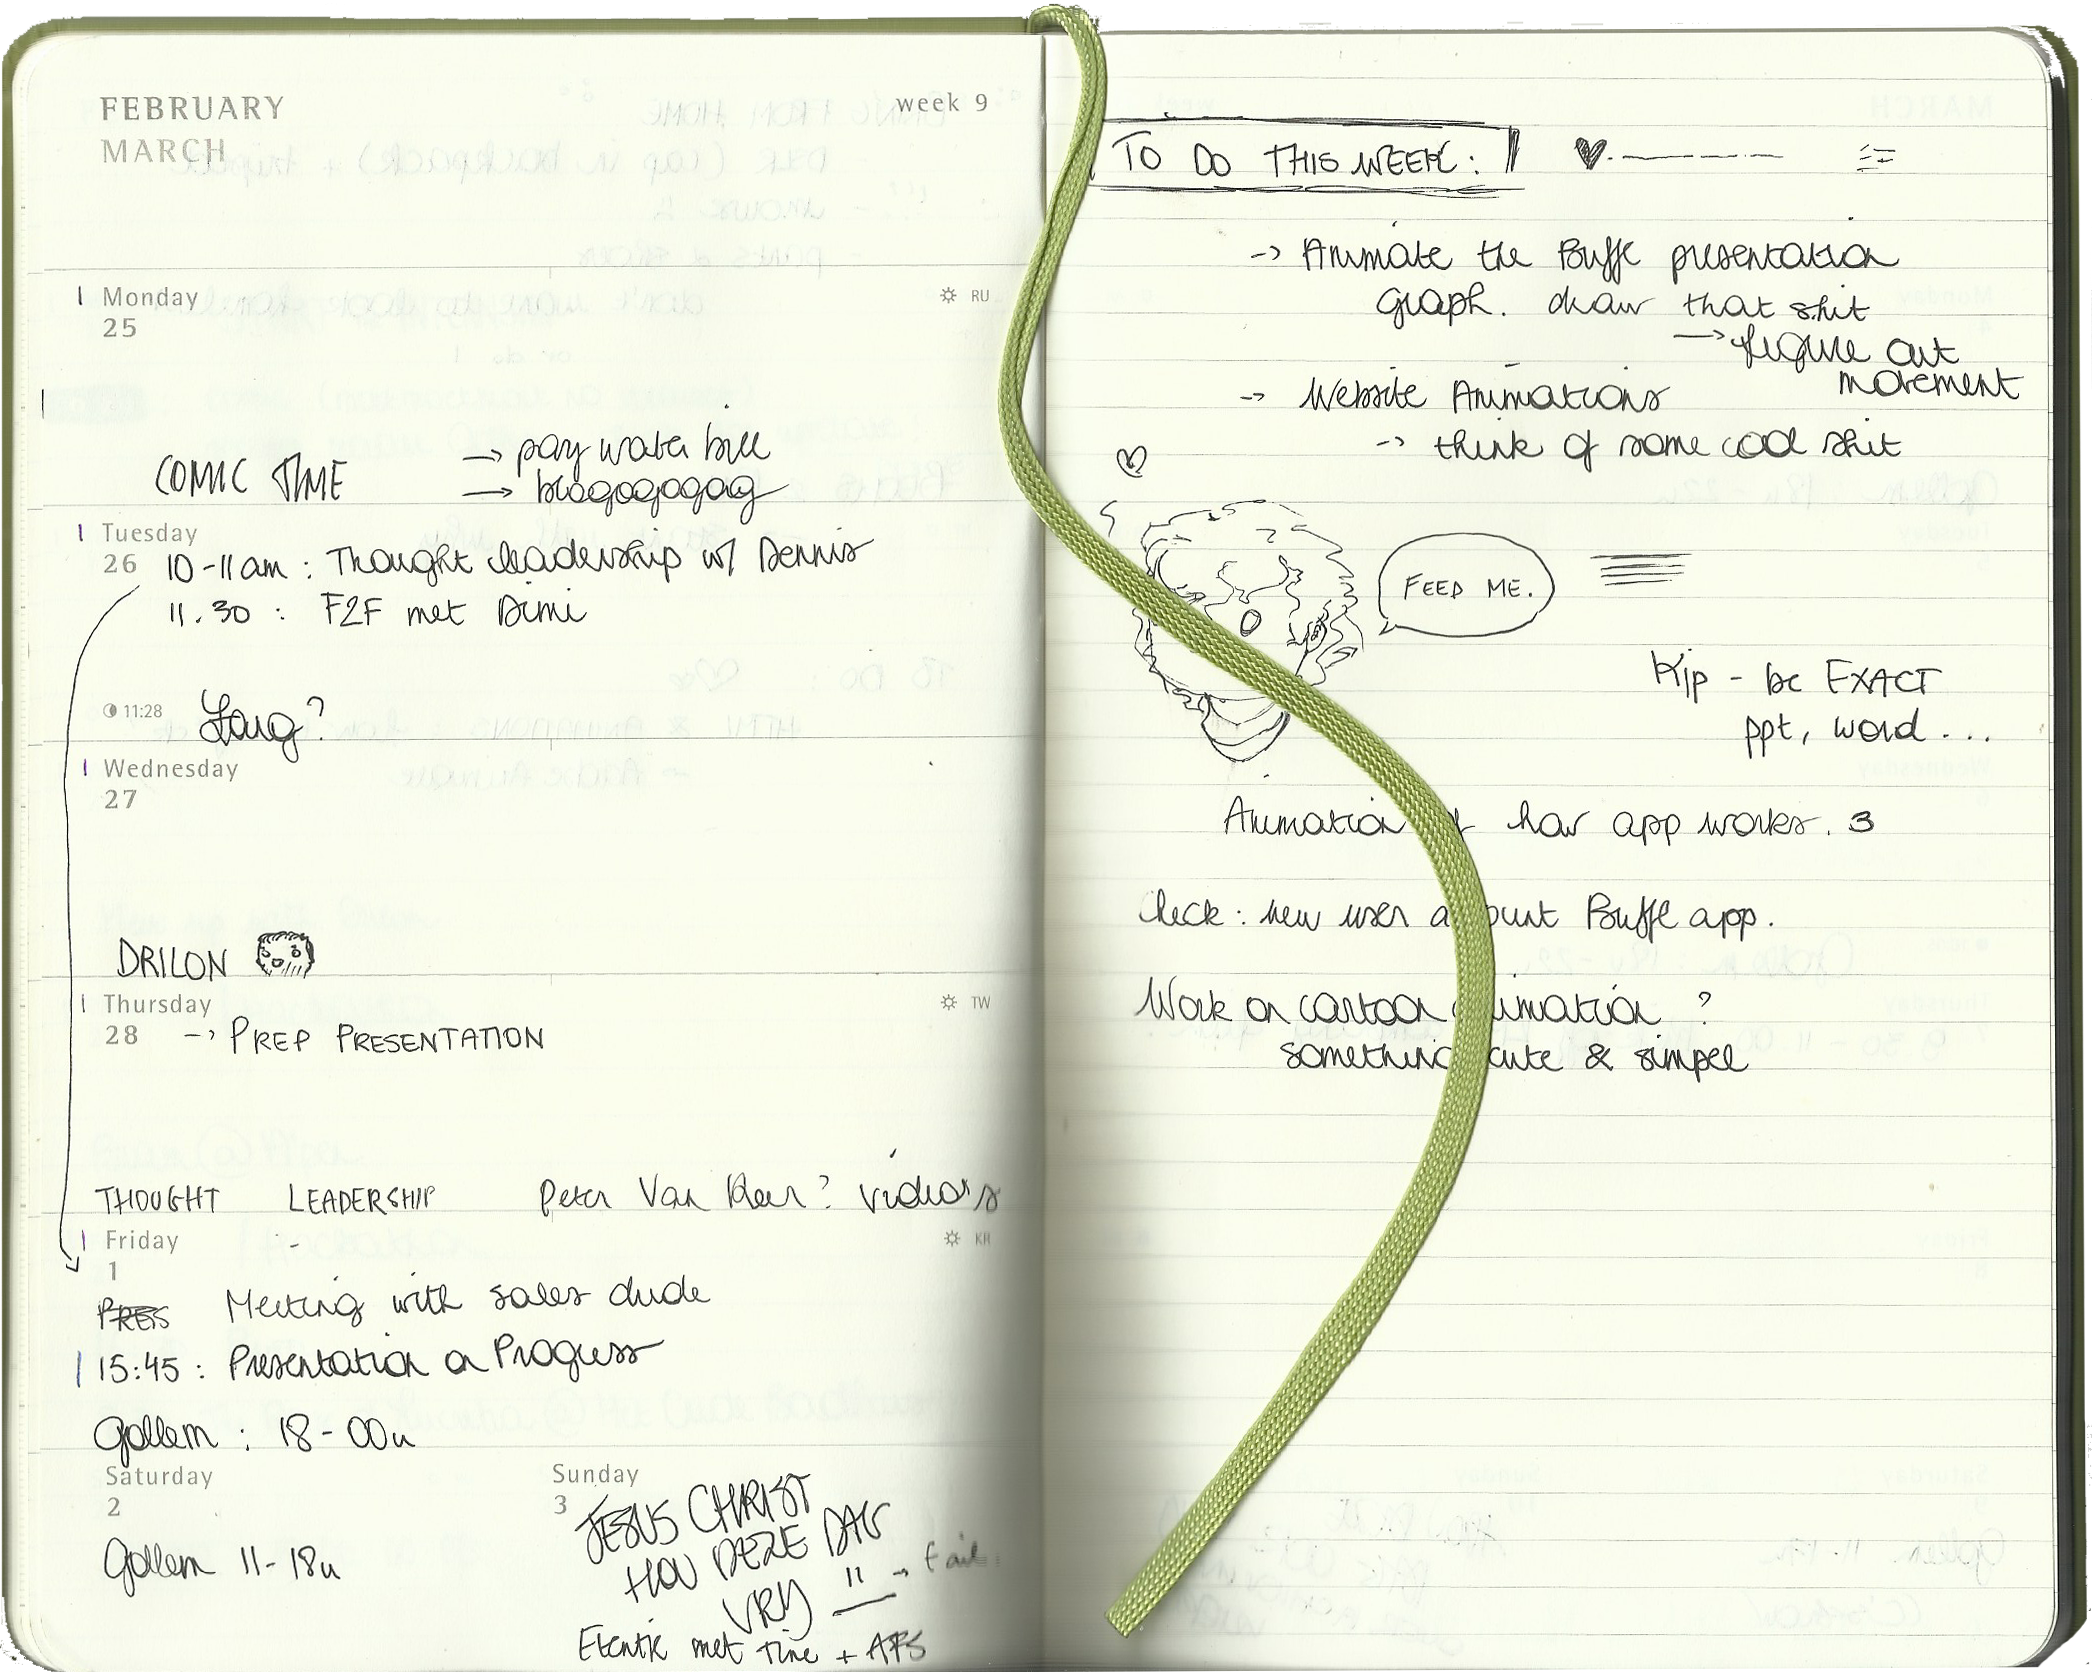 FEBRUARY
MARCH
week 9
Monday
25
RU
COMIC TIME
→ pay water bill
→ blogogogog
Tuesday
26
10-11am : Thought leadership w/ Dennis
11.30 : F2F met Dimi
11:28
Wednesday
27
DRILON
Thursday
28
TW
→ PREP PRESENTATION
THOUGHT LEADERSHIP Peter Van video's
Friday
1
KR
Meeting with sales dude
15:45 : Presentation on Progress
Gollem : 18-00u
Saturday
2
Gollem 11-18u
Sunday
3
JESUS CHRIST
HOU DEZE DAG
VRY !! → fail
Etentje met Tine + AFS
TO DO THIS WEEK :
-> Animate the Buffl presentation
graph. draw that shit
→ figure out
movement
-> Website Animations
-> think of some cool shit
FEED ME.
Kip - be EXACT
ppt, word ...
Animation how app works. 3
Check : new user Buffl app.
Work on cartoon ?
& simpel